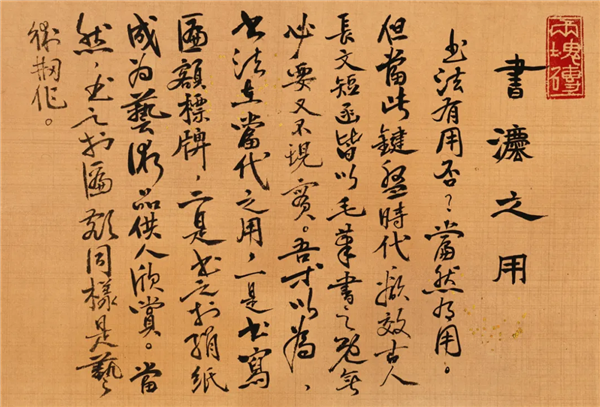 書灋之用
书法有用否？當然有用。
但當此鍵盤時代欲效古人
長文短函皆以毛筆書之既無
必要又不現實。吾以為，
书法在當代之用，一是书寫
匾額標牌，二是书之於絹紙
成为藝術品供人欣賞。當
然，书之於匾额同樣是藝
術創作。